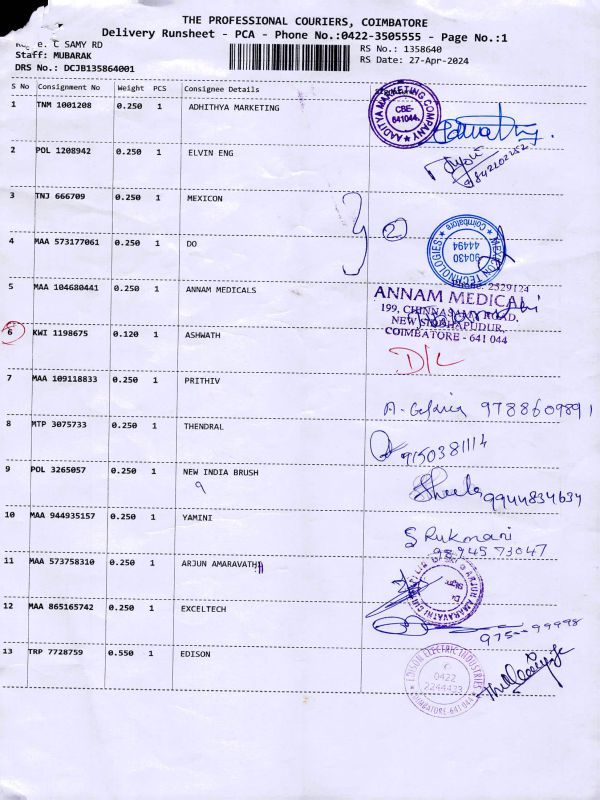 THE PROFESSIONAL COURIERS, COIMBATORE
Delivery Runsheet - PCA - Phone No.:0422-3505555 - Page No.:1
C SAMY RD
RS No.: 1358640
Staff: MUBARAK
RS Date: 27-Apr-2024
DRS No.: DCJB135864001
S No Consignment No Weight PCS Consignee Details
1 TNM 1001208 0.250 1 ADHITHYA MARKETING
AADITYA MARKETING COMPANY
CBE-
641044
2 POL 1208942 0.250 1 ELVIN ENG
9842202252
3 TNJ 666709 0.250 1 MEXICON
4 MAA 573177061 0.250 1 DO
2
MEXICON TECHNOLOGIES
Coimbatore
90430
44494
5 MAA 104680441 0.250 1 ANNAM MEDICALS
Phone: 2529124
ANNAM MEDICAL
199, CHINNASAMY ROAD,
NEW SIDDHAPUDUR,
COIMBATORE - 641 044
6 KWI 1198675 0.120 1 ASHWATH
D/L
7 MAA 109118833 0.250 1 PRITHIV
9788609891
8 MTP 3075733 0.250 1 THENDRAL
9150381114
9 POL 3265057 0.250 1 NEW INDIA BRUSH
9
Sheela 9944834634
10 MAA 944935157 0.250 1 YAMINI
S Rukmani
9894573047
11 MAA 573758310 0.250 1 ARJUN AMARAVATHI
12 MAA 865165742 0.250 1 EXCELTECH
13 TRP 7728759 0.550 1 EDISON
EDISON ELECTRIC INDUSTRIES
0422
2244423
COIMBATORE-641 044